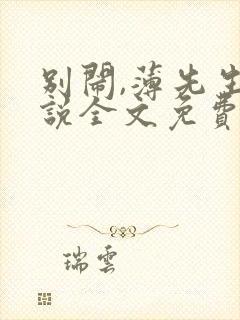 別鬧,薄先生
說全文免費
瑞雲